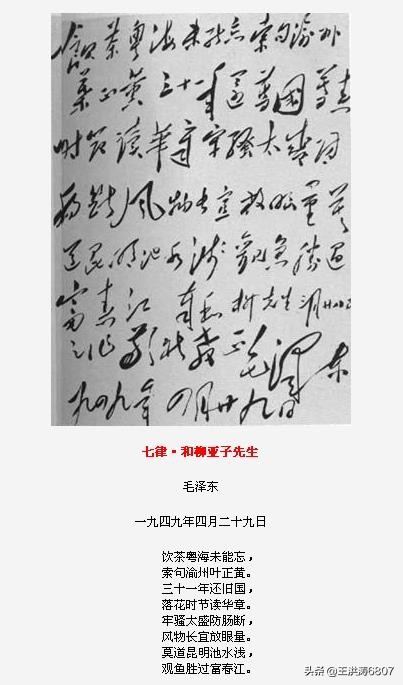 飲茶粤海未能忘索句渝州
葉正黄三十一年還舊國落花
時節讀華章牢騷太盛防
腸斷風物長宜放眼量莫
道昆明池水浅觀魚勝過
富春江 奉和柳先生三月廿八日
之作敬祈教正 毛澤东
一九四九年四月廿九日
七律·和柳亚子先生
毛泽东
一九四九年四月二十九日
饮茶粤海未能忘，
索句渝州叶正黄。
三十一年还旧国，
落花时节读华章。
牢骚太盛防肠断，
风物长宜放眼量。
莫道昆明池水浅，
观鱼胜过富春江。
头条 @王洪涛6807